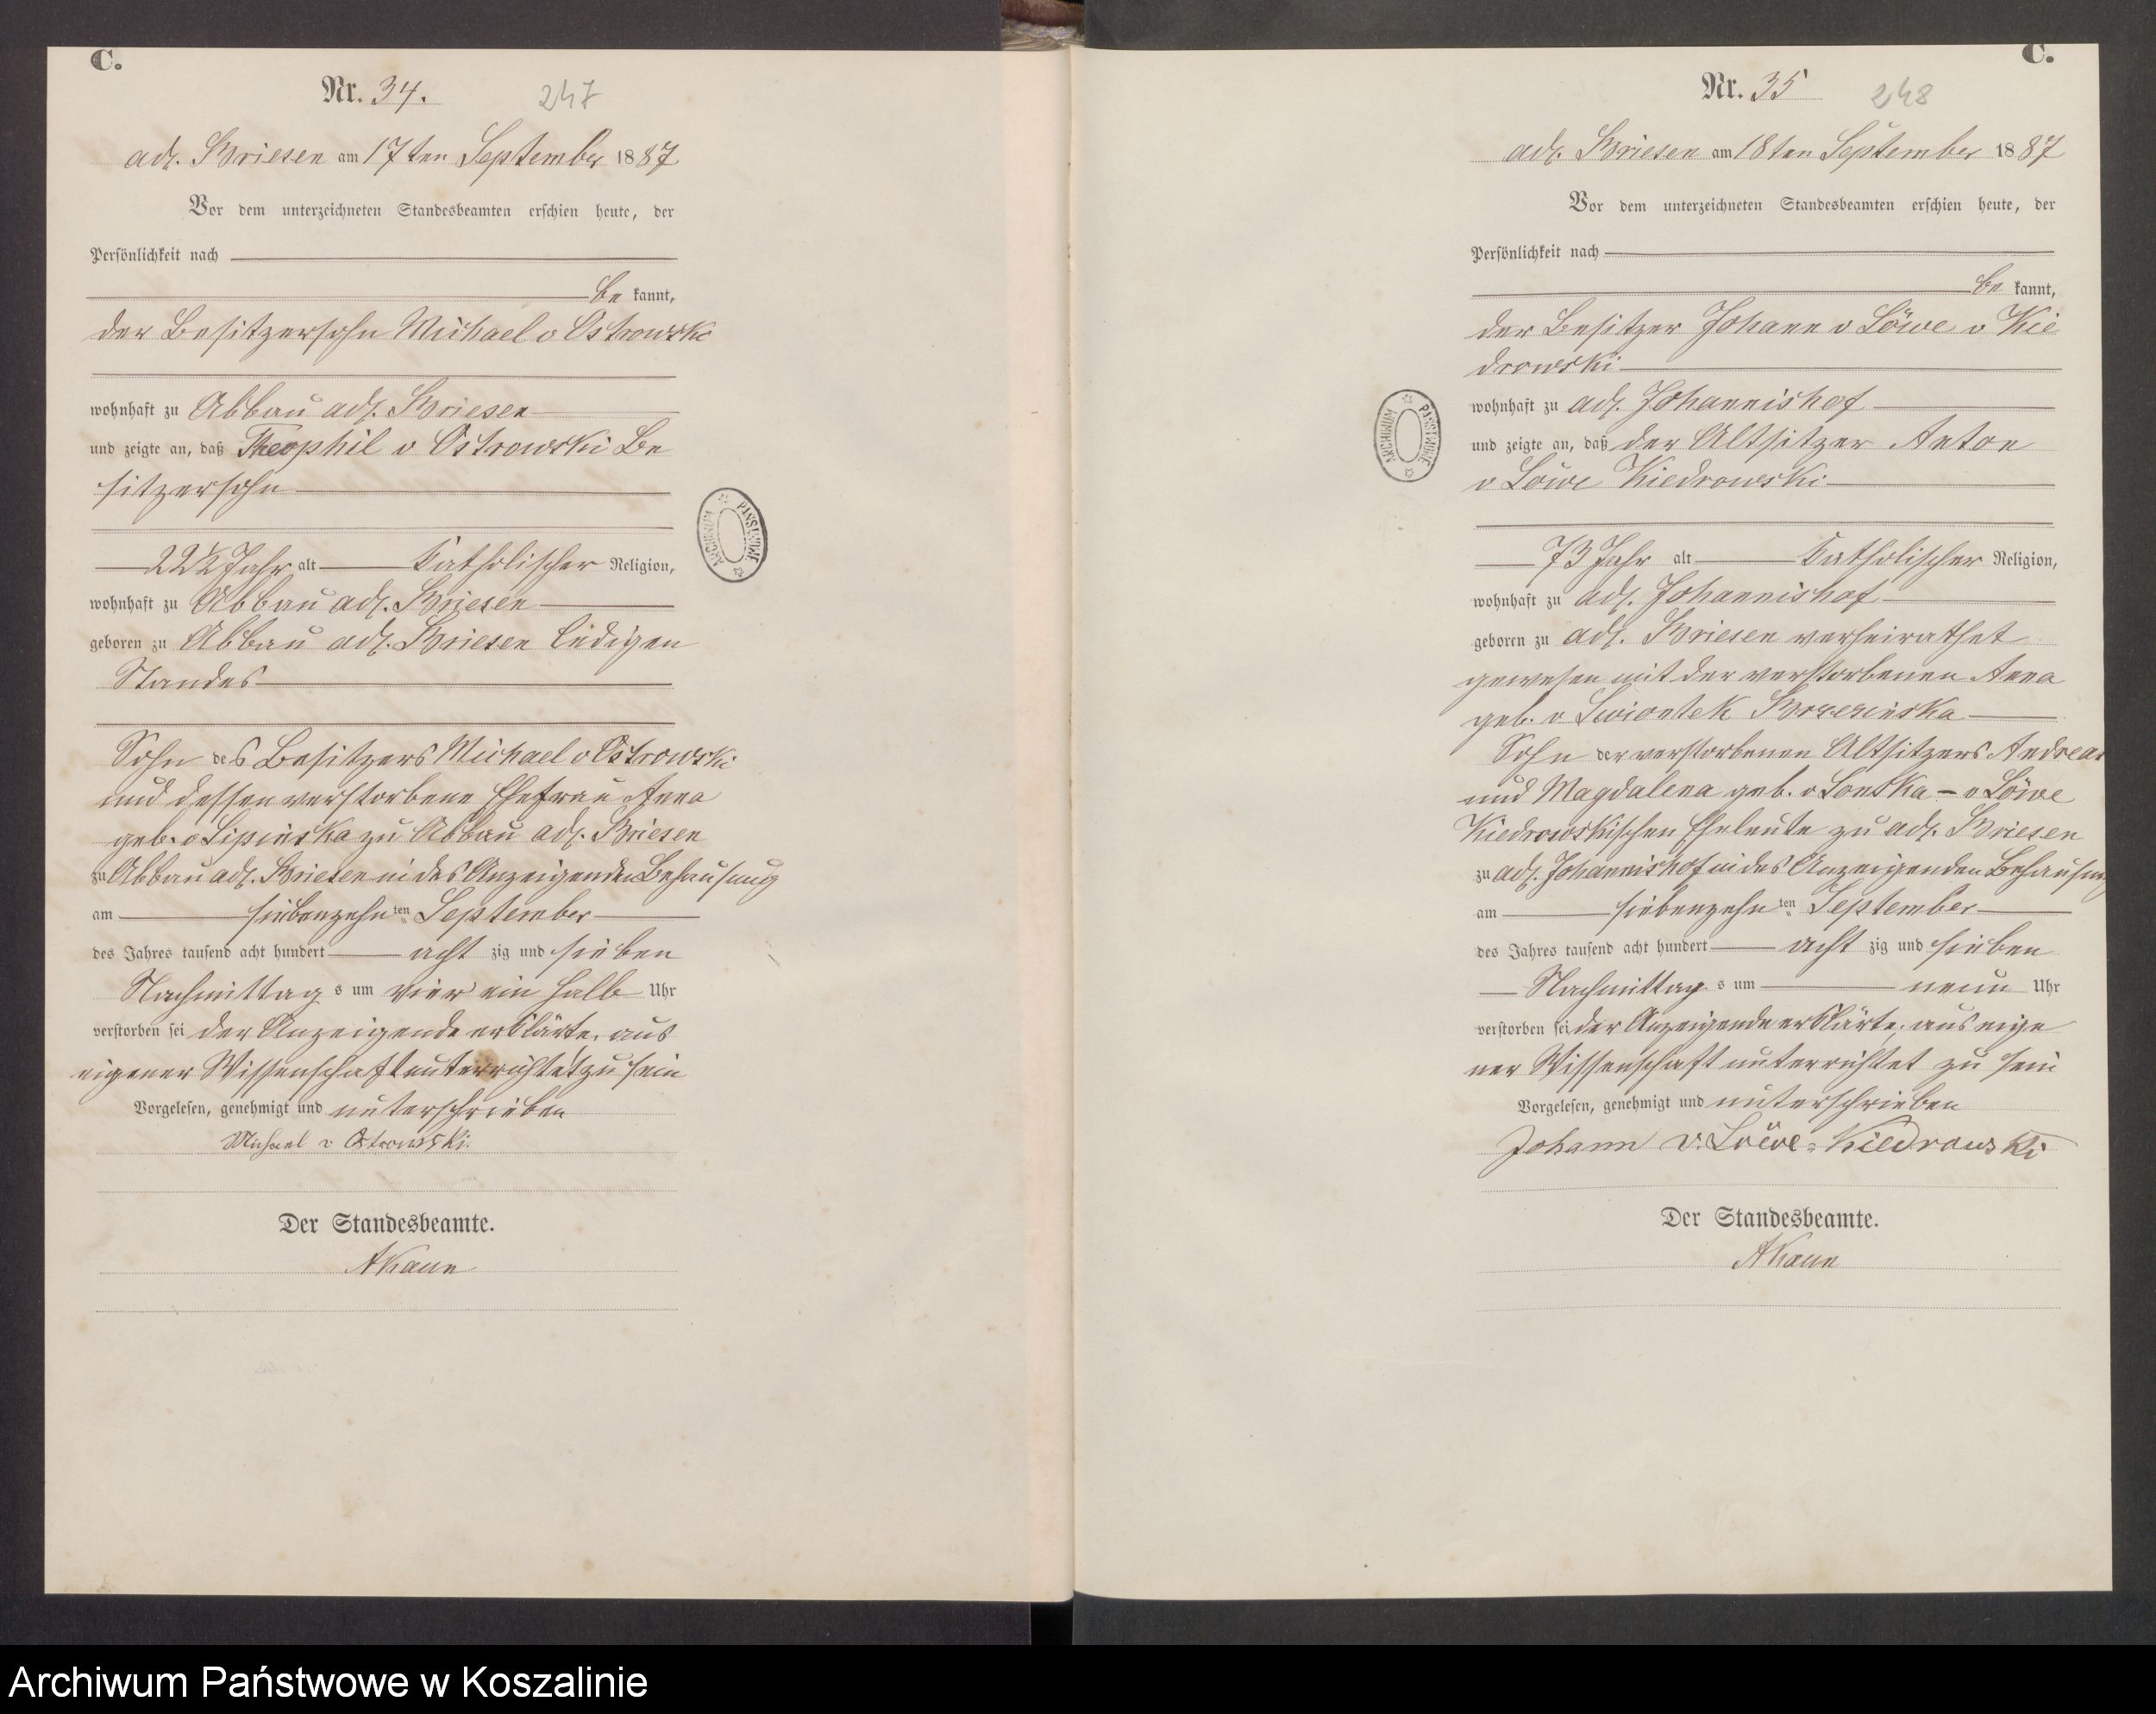 C.
Nr. 34. 247
adl. Briesen am 17ten September 1887
Vor dem unterzeichneten Standesbeamten erschien heute, der
Persönlichkeit nach
be kannt,
der Besitzersohn Michael v Ostrowski
wohnhaft zu Abbau adl. Briesen
und zeigte an, daß Theophil v Ostrowski Be
sitzersohn
22½ Jahr alt katholischer Religion,
wohnhaft zu Abbau adl. Briesen
geboren zu Abbau adl. Briesen ledigen
Standes
Sohn des Besitzers Michael v Ostrowski
und dessen verstorbene Ehefrau Anna
geb. v Lipinska zu Abbau adl. Briesen
zu Abbau adl. Briesen in des Anzeigenden Behausung
am siebenzehnten September
des Jahres tausend acht hundert acht zig und sieben
Nachmittag s um vier ein halb Uhr
verstorben sei der Anzeigende erklärte, aus
eigener Wissenschaft unterrichtet zu sein
Vorgelesen, genehmigt und unterschrieben
Michael v Ostrowski.
Der Standesbeamte.
ARCHIWUM PAŃSTWOWE
C.
Nr. 35 248
adl. Briesen am 18ten September 1887
Vor dem unterzeichneten Standesbeamten erschien heute, der
Persönlichkeit nach
be kannt,
der Besitzer Johann v Löwe v Kie
drowski
wohnhaft zu adl. Johannishof
und zeigte an, daß der Altsitzer Anton
v Löwe Kiedrowski
73 Jahr alt katholischer Religion,
wohnhaft zu adl. Johannishof
geboren zu adl. Briesen verheirathet
gewesen mit der verstorbenen Anna
geb. v Swiontek Brzezinska
Sohn der verstorbenen Altsitzers Andreas
und Magdalena geb. v Lonska - v Löwe
Kiedrowskischen Eheleute zu adl. Briesen
zu adl. Johannishof in des Anzeigenden Behausung
am siebenzehnten September
des Jahres tausend acht hundert acht zig und sieben
Nachmittag s um neun Uhr
verstorben sei der Anzeigende erklärte, aus eige
ner Wissenschaft unterrichtet zu sein
Vorgelesen, genehmigt und unterschrieben
Johann v. Löwe-Kiedrowski
Der Standesbeamte.
ARCHIWUM PAŃSTWOWE
Archiwum Państwowe w Koszalinie